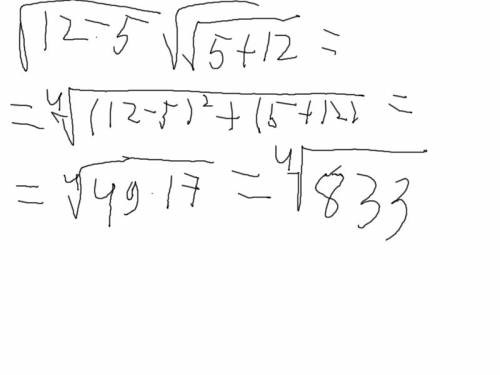 √(12-5) √√(5+12) =
= ⁴√((12-5)² + (5+12)) =
= ⁴√(49·17) = ⁴√833